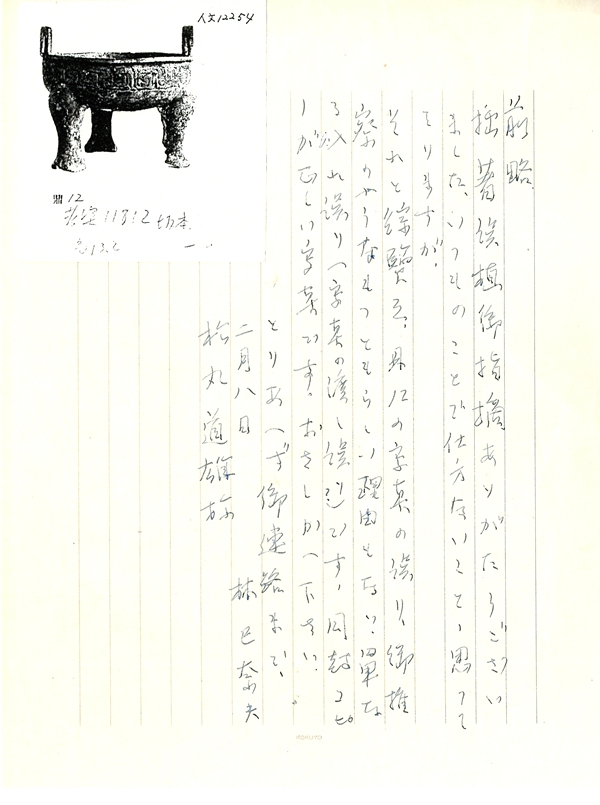 人文12254
鼎12
前略
拙著誤植御指摘ありがたうござい
ました。いつものことで仕方ないことゝ思つて
をりますが。
それと綜覧三、鼎12の字
の誤り、御推
察のやうなもつともらしい理由もない、単な
る入れ誤り
です。同封コピ
ーが正しい
です。おさしかへ下さい。
とりあへず御連絡まで。
二月八日
林巳奈夫
松丸道雄様
KOKUYO